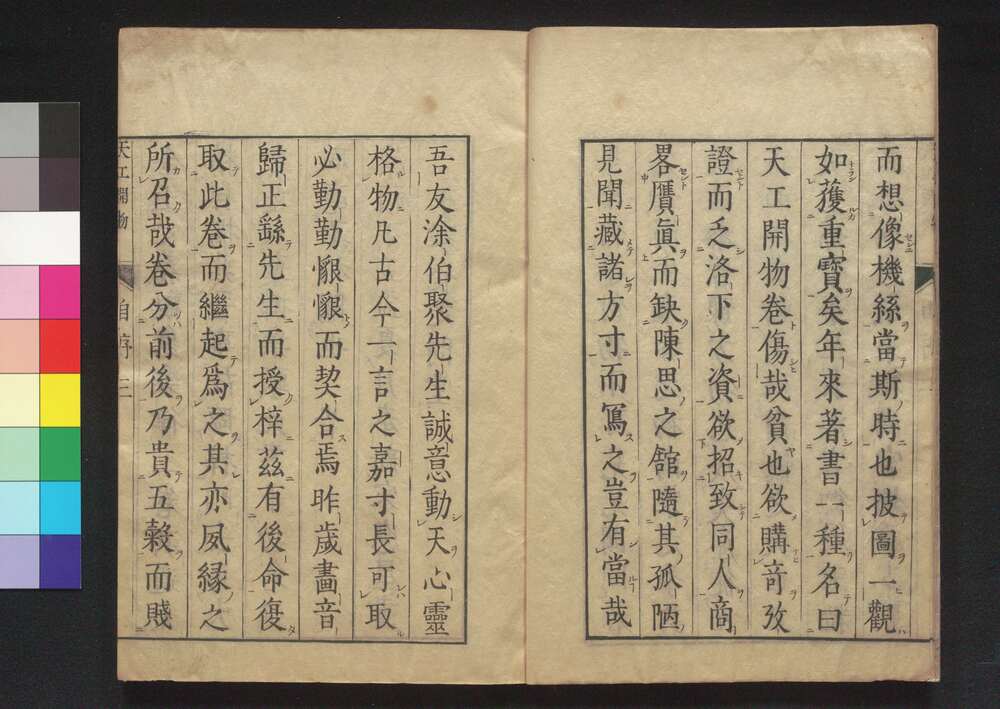 而想像機絲當斯時也披圖一觀
如獲重寶矣年來著書一種名曰
天工開物卷傷哉貧也欲購奇攷
證而乏洛下之資欲招致同人商
畧贋眞而缺陳思之舘隨其孤陋
見聞藏諸方寸而寫之豈有當哉
吾友涂伯聚先生誠意動天心靈
格物凡古今一言之嘉寸長可取
必勤勤懇懇而契合焉昨歲畫音
歸正繇先生而授梓茲有後命復
取此卷而繼起爲之其亦夙縁之
所召哉卷分前後乃貴五穀而賤
天工開物 自序 二